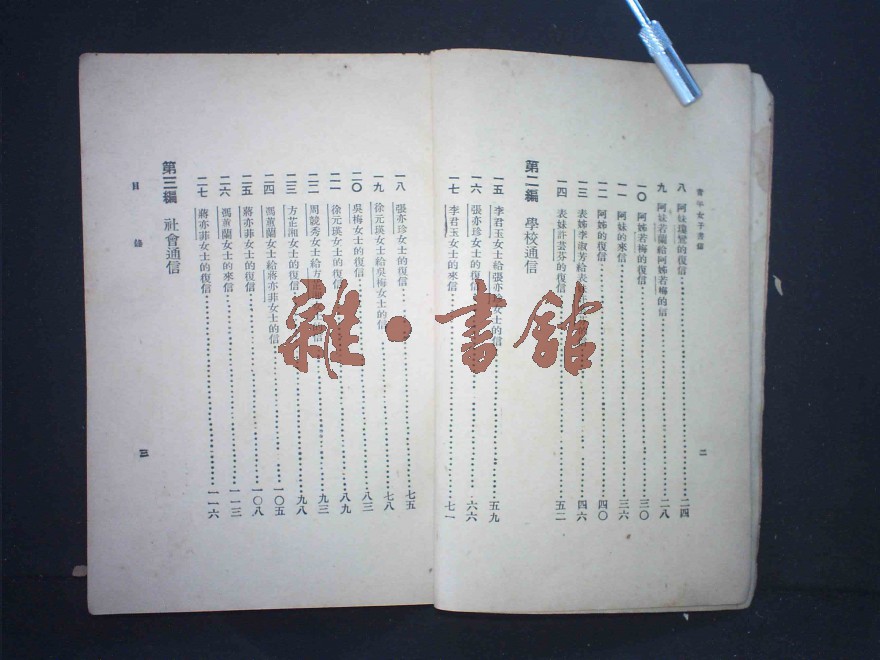 青年女子書信
八 阿妹瓊鴛的復信 二四
九 阿妹若蘭給阿姊若梅的信 二八
一〇 阿姊若梅的復信 三〇
一一 阿妹的來信 三六
一二 阿姊的復信 四〇
一三 表姊李淑芳給表 四六
一四 表妹許芸芬的復信 五二
第二編 學校通信
一五 李君玉女士給張亦珍女士的信 五九
一六 張亦珍女士的復信 六六
一七 李君玉女士的來信 七一
二
一八 張亦珍女士的復信 七五
一九 徐元瑛女士給吳梅女士的信 七八
二〇 吳梅女士的復信 八三
二一 徐元瑛女士的復信 八九
二二 周競秀女士給方 信 九三
二三 方芷湘女士的復信 九八
二四 馮蕙蘭女士給蔣亦菲女士的信 一〇五
二五 蔣亦菲女士的復信 一〇八
二六 馮蕙蘭女士的來信 一一三
二七 蔣亦菲女士的復信 一一六
第三編 社會通信
目錄
三
雜·書館